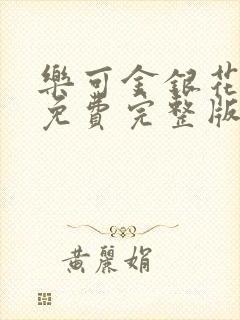 樂可金銀花
免費完整版
黃麗娟